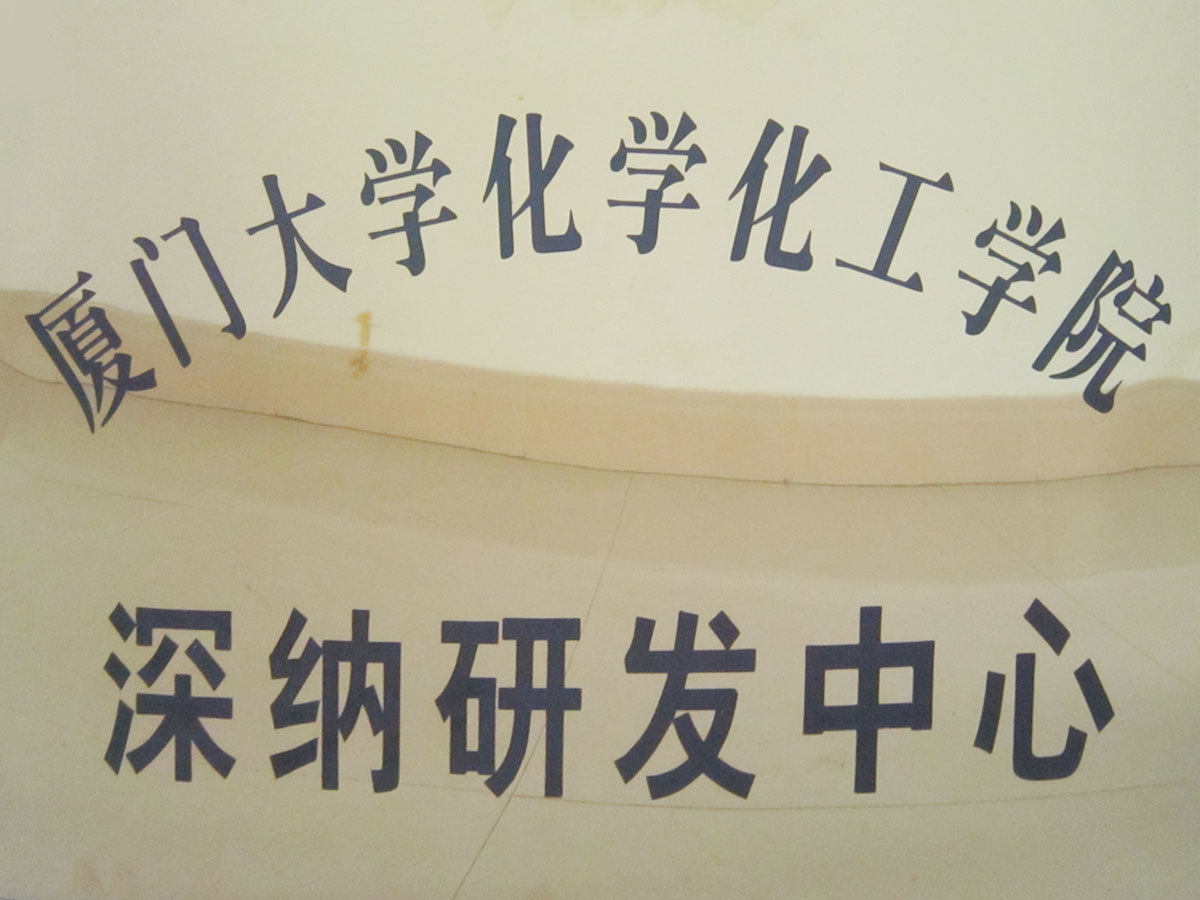 厦门大学化学化工学院
深纳研发中心